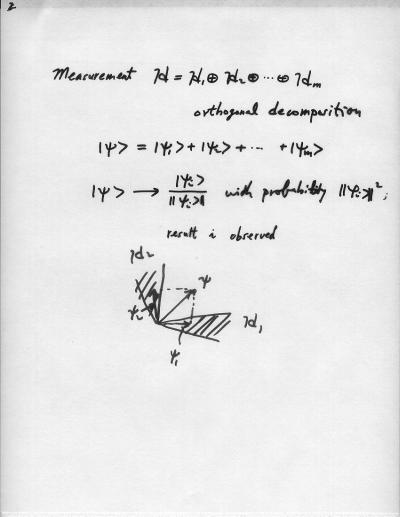 2
Measurement ℋ = ℋ₁ ⊕ ℋ₂ ⊕ ··· ⊕ ℋₘ
orthogonal decomposition
|ψ> = |ψ₁> + |ψ₂> + ··· + |ψₘ>
|ψ> → |ψᵢ> / || |ψᵢ> || with probability || |ψᵢ> ||²;
result i observed
ℋ₂
ψ
ψ₂
ℋ₁
ψ₁